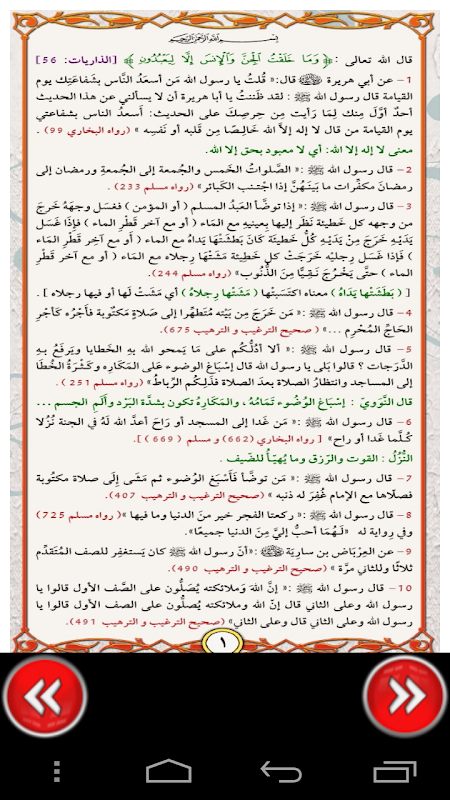 بسم الله الرحمن الرحيم
قال الله تعالى : ﴿ وَمَا خَلَقْتُ الْجِنَّ وَالْإِنسَ إِلَّا لِيَعْبُدُونِ ﴾ [الذاريات: 56]
1 – عن أبي هريرة ﷺ قال:« قُلتُ يا رسول الله مَن أسعَدُ النَّاس بشَفاعَتِك يوم
القيامة قال رسول الله ﷺ : لقد ظَننتُ يا أبا هريرة أن لا يسألني عن هذا الحديث
أحدٌ أوَّلَ مِنك لِمَا رَأيت مِن حِرصِكَ على الحديث: أسعدُ الناس بشفاعتي
يوم القيامة من قال لا إله إلاَّ الله خَالِصًا مِن قَلبه أو نَفسِه » (رواه البخاري 99) .
معنى لا إله إلا الله: أي لا معبود بحق إلا الله.
2 – قال رسول الله ﷺ :« الصَّلواتُ الخَمس والجُمعة إلى الجُمعةِ ورمضان إلى
رمضان مكفِّرات ما بَينَهُنَّ إذا اجتُنب الكَبائر» (رواه مسلم 233) .
3 – قال رسول الله ﷺ :« إذا توضَّأ العَبدُ المسلم ( أو المؤمن ) فغسل وجههُ خَرجَ
من وجهه كل خطيئة نَظَر إليها بِعينيهِ مع المَاء ( أو مع آخر قَطْرِ الماء ) فإذَا غَسَل
يَدَيْهِ خَرَجَ مِنْ يَدَيْهِ كُلُّ خَطيئَةٍ كَانَ بَطَشَتْهَا يَدَاهُ مع الماء ( أو مَعَ آخِر قَطْرِ الماء
) فَإذَا غَسَل رِجليْه خَرَجَتْ كل خَطِيئَة مَشَتْهَا رِجلاه مع المَاء ( أو مع آخر قَطر
الماء ) حتَّى يَخْرُجَ نَقِيًّا مِنَ الذُّنُوب» (رواه مسلم 244).
[ ( بَطَشَتْها يَدَاهُ ) معناه اكتَسَبَتْها ( مَشَتْها رِجلاهُ ) أي مَشَتْ لَها أو فيها رجلاه ] .
4 – قال رسول الله ﷺ :« مَن خَرَجَ مِن بَيْته مُتَطهِّرا إلى صَلاةٍ مَكتُوبة فأجْرُه كَأجْرِ
الحَاجِّ المُحْرِم ...» ( صحيح الترغيب و الترهيب 675).
5 – قال رسول الله ﷺ :« ألا أدُلُّكُم على مَا يَمحو الله بِهِ الخَطايا ويَرفَعُ بِهِ
الدَّرَجات ؟ قالوا بَلى يا رسول الله قال إسْبَاغ الوضوء عَلى المَكَارِه وكَثْرَةُ الخُطَا
إلى المساجد وانتظارُ الصلاة بعدَ الصلاة فذَلِكُم الرِّباطُ» (رواه مسلم 251 ) .
قال النَّوَوِيّ : إسْبَاغ الوُضُوء تَمَامُهُ ، والمَكَارِهُ تكون بشدَّة البَرْد وألَمِ الجسم ...
6 – قال رسول الله ﷺ :« مَن غَدا إلى المسجد أو رَاحَ أعدَّ الله لَهُ في الجنة نُزُلًا
كُلَّما غَدا أو راح» [ رواه البخاري (662) و مسلم ( 669 ) ].
النُّزُلُ : القوت والرّزق وما يُهيّأُ للضّيف .
7 – قال رسول الله ﷺ :« مَن توضَّأ فَأسْبَغ الوُضوء ثم مَشَى إلَى صلاة مكتُوبة
فصلاّها مع الإمام غُفِرَ له ذنبه » (صحيح الترغيب و الترهيب 407).
8 – قال رسول الله ﷺ :« ركعتا الفجر خير منَ الدنيا وما فيها »(رواه مسلم 725)
وفي رواية له «لَـهُمَا أحبُّ إليَّ مِنَ الدنيا جميعًا».
9 – عن العِرْبَاض بن ساريَة ﷺ :«أنَّ رسول الله ﷺ كان يَستغفِر للصف المُتَقدِّم
ثلاثًا وللثاني مرَّة » (صحيح الترغيب و الترهيب 490).
10 – قال رسول الله ﷺ :« إنَّ اللهَ وَملائكته يُصَلُّون على الصَّف الأول قالوا يا
رسول الله وعلى الثاني قال إنَّ الله وملائكته يُصلُّون على الصف الأول قالوا يا
رسول الله وعلى الثاني قال وعلى الثاني» (صحيح الترغيب و الترهيب 491).
١